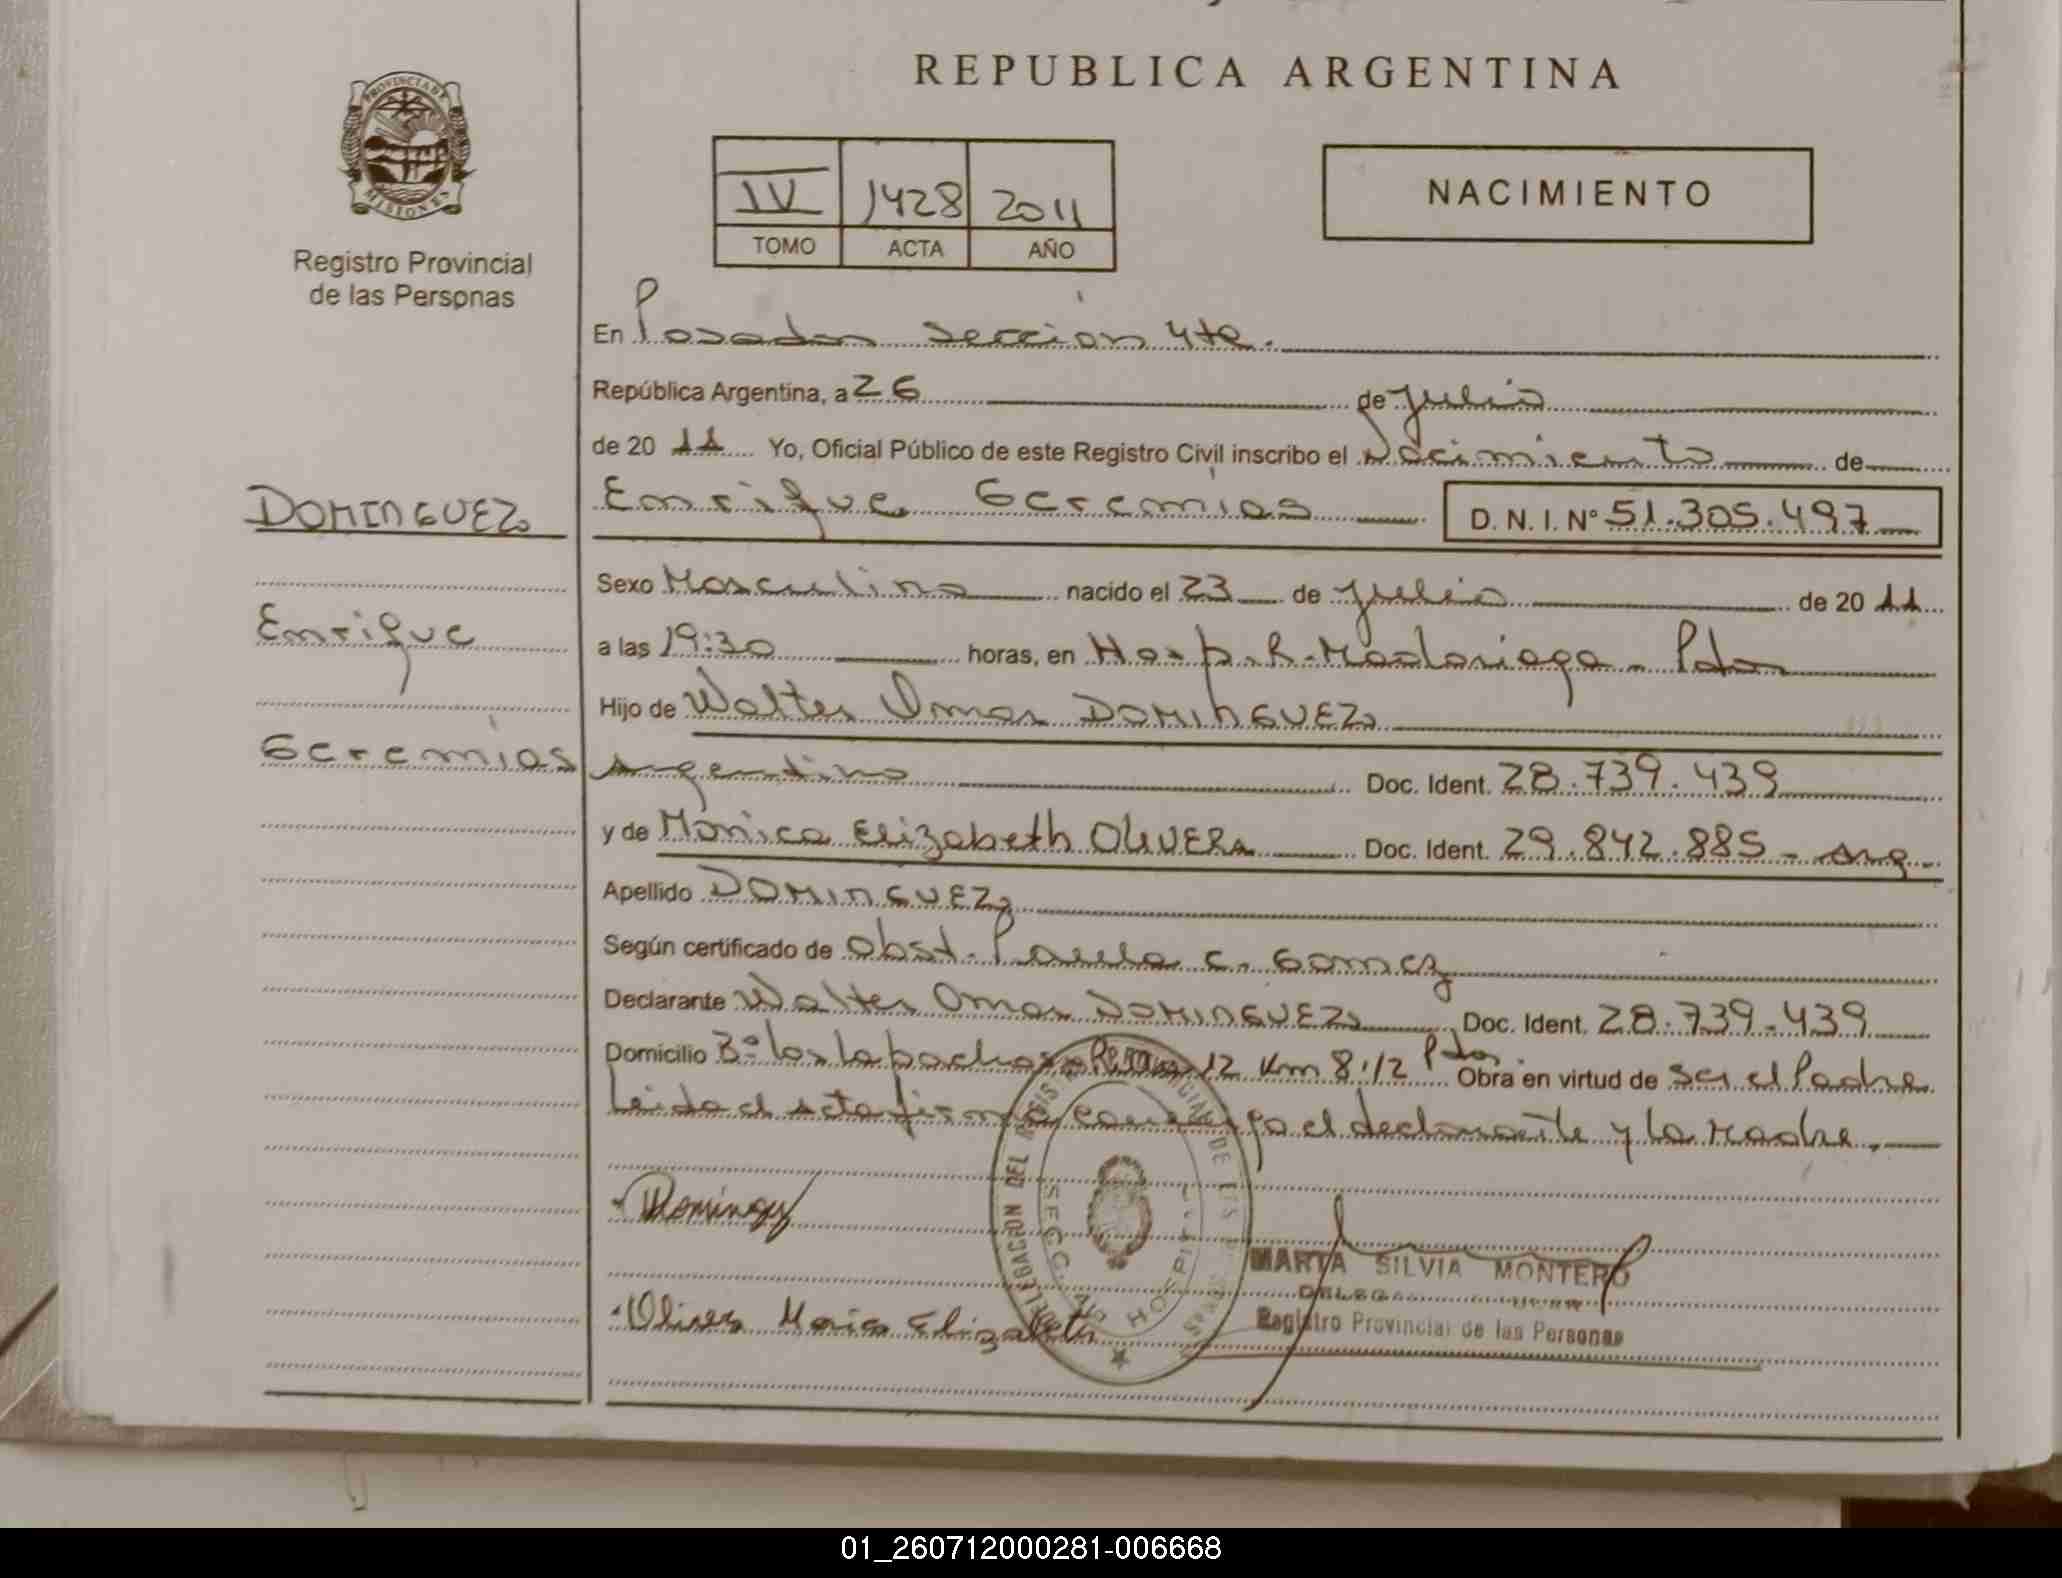 REPUBLICA ARGENTINA
PROVINCIA DE
MISIONES
Registro Provincial
de las Personas
IV 1428 2011
TOMO ACTA AÑO
NACIMIENTO
En Posadas Sección 4ta.
República Argentina, a 26 de Julio
de 20 11 Yo, Oficial Público de este Registro Civil inscribo el Nacimiento de
DOMINGUEZ
Enrique Geremías D. N. I. Nº 51.305.497
Sexo Masculino nacido el 23 de Julio de 20 11
Enrique
a las 19:30 horas, en Hosp. R. Madariaga - Pdas
Hijo de Walter Omar DOMINGUEZ
Geremías
Argentino Doc. Ident. 28.739.439
y de Mónica Elizabeth OLIVERA Doc. Ident. 29.842.885 - Arg.
Apellido DOMINGUEZ
Según certificado de Obst. Paula C. Gomez
Declarante Walter Omar DOMINGUEZ Doc. Ident. 28.739.439
Domicilio Bº los lapachos 12 Km 8 1/2 Pdas. Obra en virtud de Ser el Padre
Leida el acta firma conmigo el declarante y la Madre.
Dominguez
SECC. HOSPITAL
MARTA SILVIA MONTERO
Registro Provincial de las Personas
Elizabeth
01_260712000281-006668